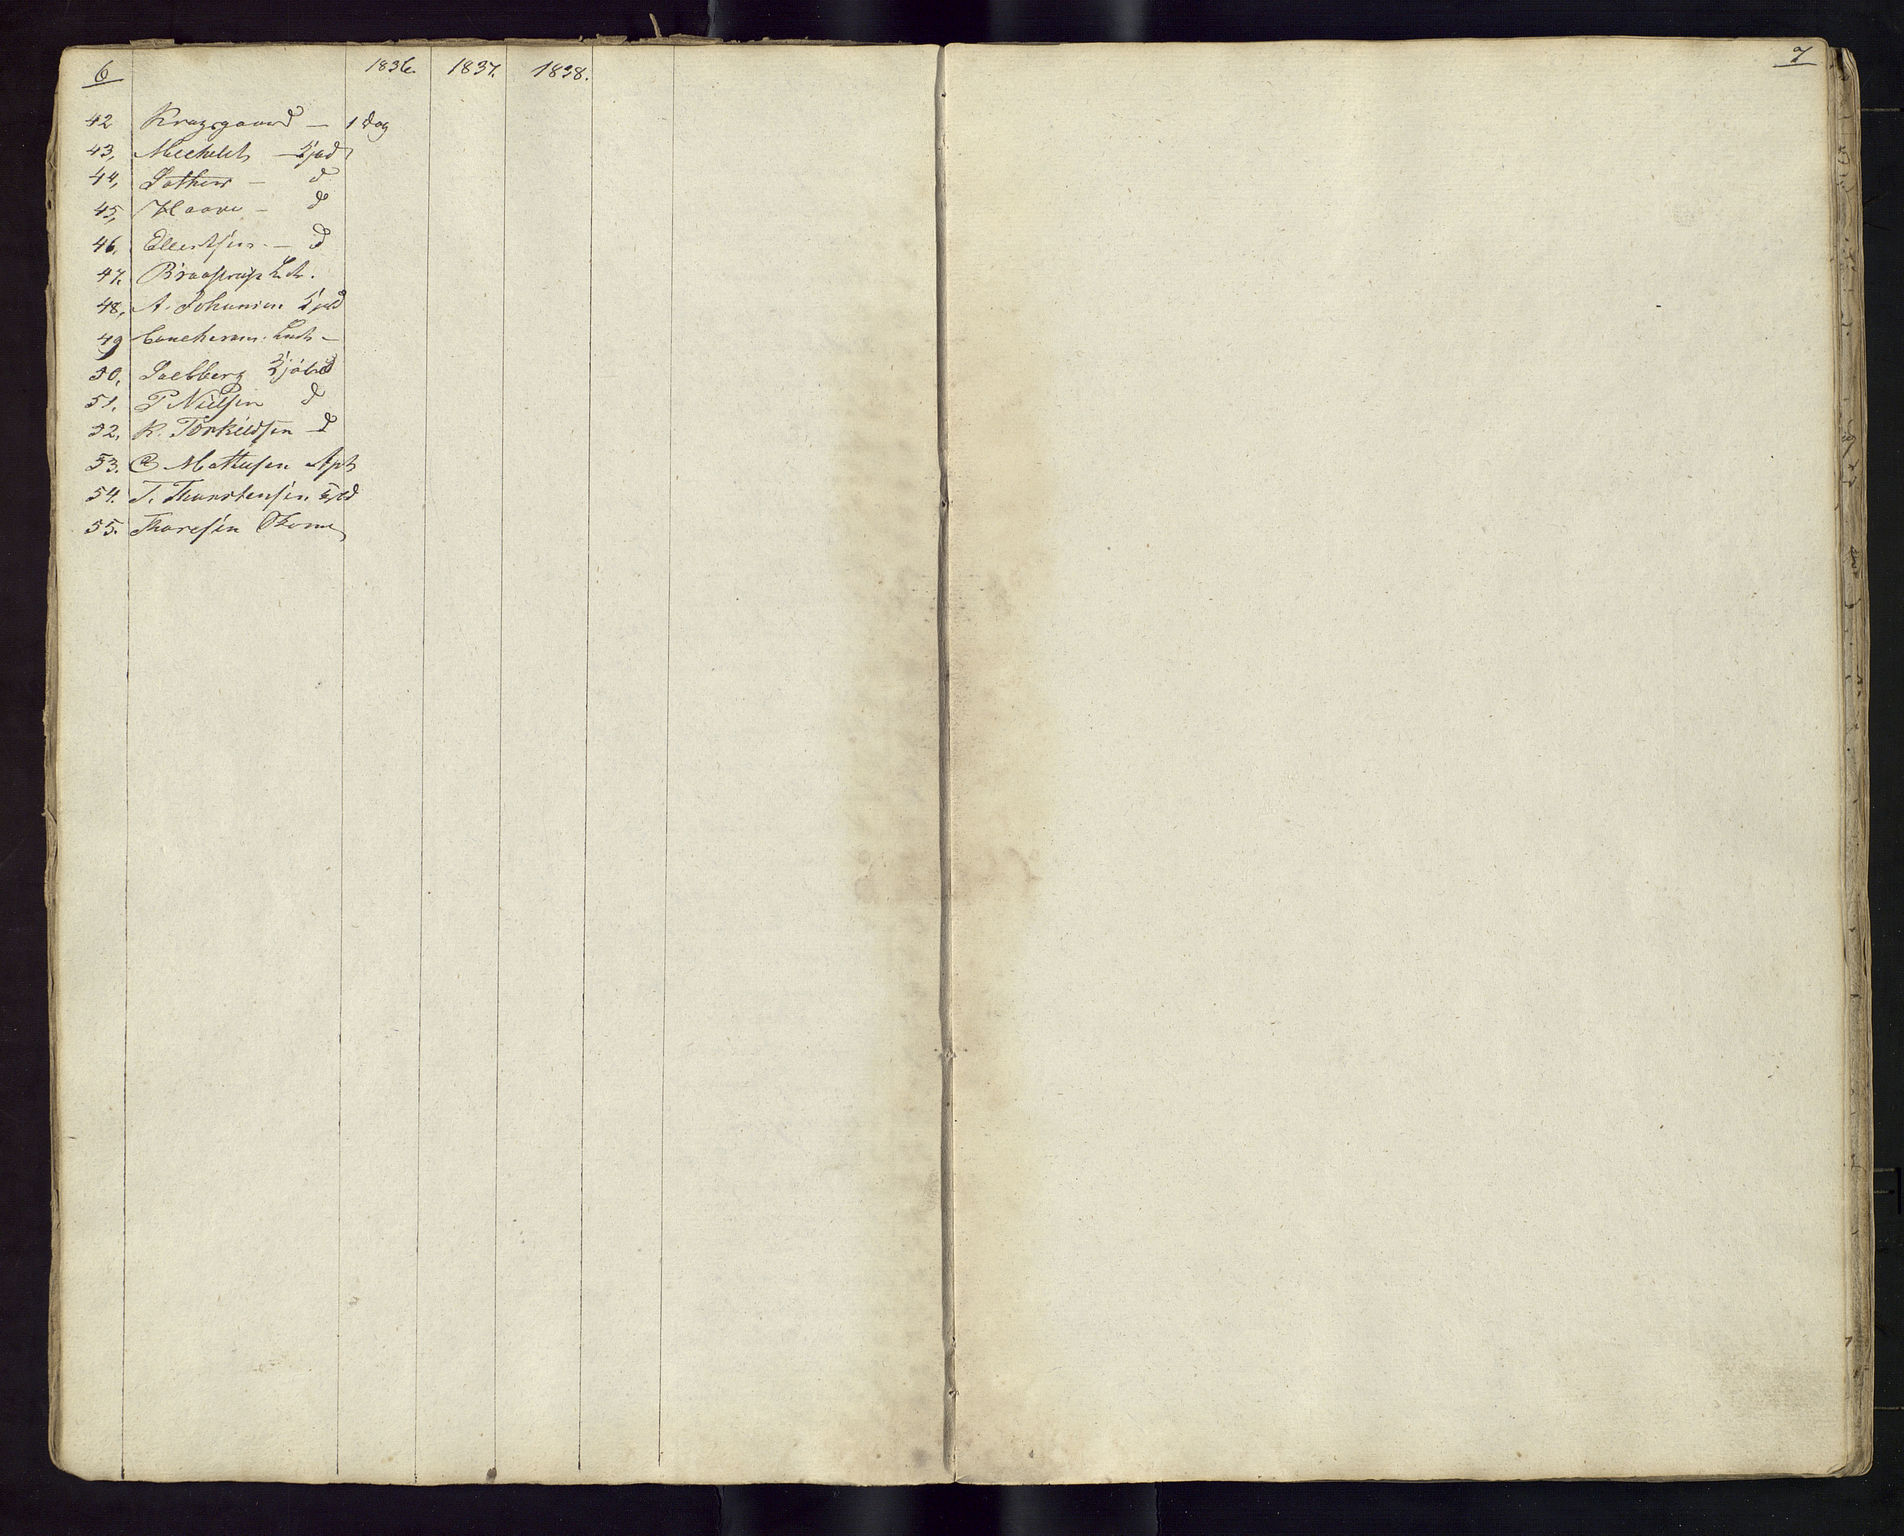 6 1836. 1837. 1838.
42 Kragsgaard — 1 Dag
43, Mechelet — Kjød
44, Sothen — d
45, Haave — d
46, Ellertsen — d
47. Braastrup Lth.
48, A. Johansen Kjød
49 Coucheron Lieth —
50, Soelberg Kjöbd
51. P Nielsen d
52, K. Torkildsen — d
53. C Mathisen Apt
54. T. Thorstensen
55. Thoresen
7